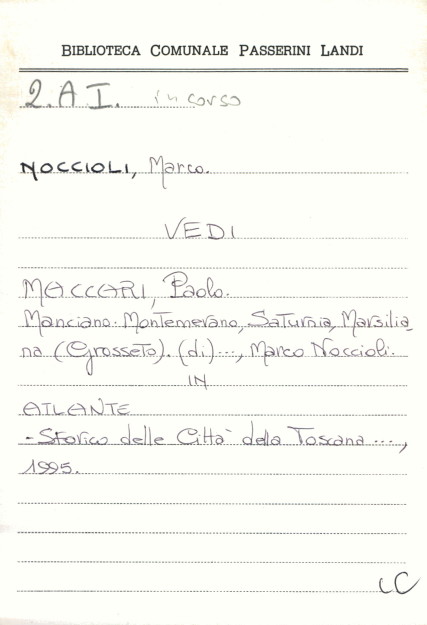 BIBLIOTECA COMUNALE PASSERINI LANDI
2.A I. in corso
NOCCIOLI, Marco.
VEDI
MACCARI, Paolo.
Manciano. Montemerano, Saturnia, Marsilia-
na (Grosseto). (di) ..., Marco Noccioli.
IN
ATLANTE
- Storico delle Città della Toscana ...,
1995.
LC